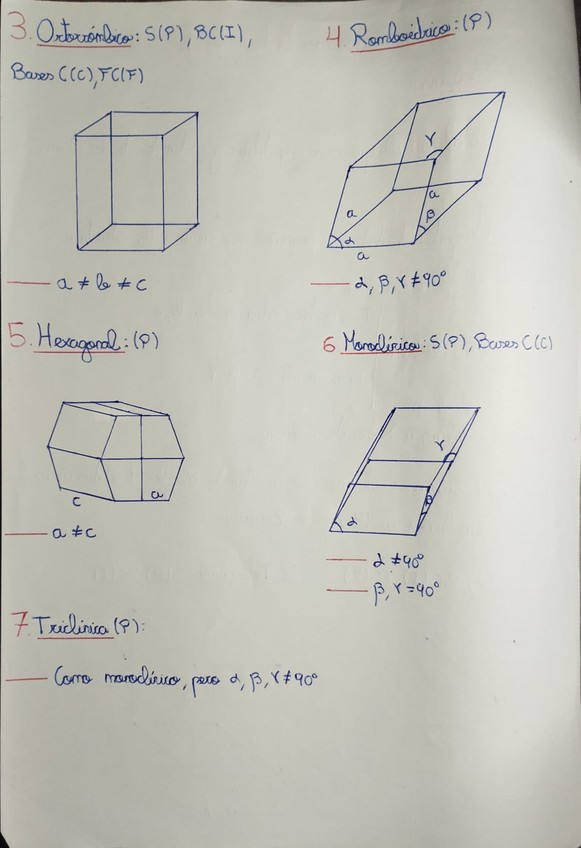 3. Ortorrómbico: S(P), BC(I),
Bases C(C), FC(F)
a ≠ b ≠ c
4. Romboédrico: (P)
γ
a
a
β
α
a
α, β, γ ≠ 90°
5. Hexagonal: (P)
c
a
a ≠ c
6 Monoclínica: S(P), Bases C(C)
γ
β
α
α ≠ 90°
β, γ = 90°
7. Triclínica (P):
Como monoclínico, pero α, β, γ ≠ 90°